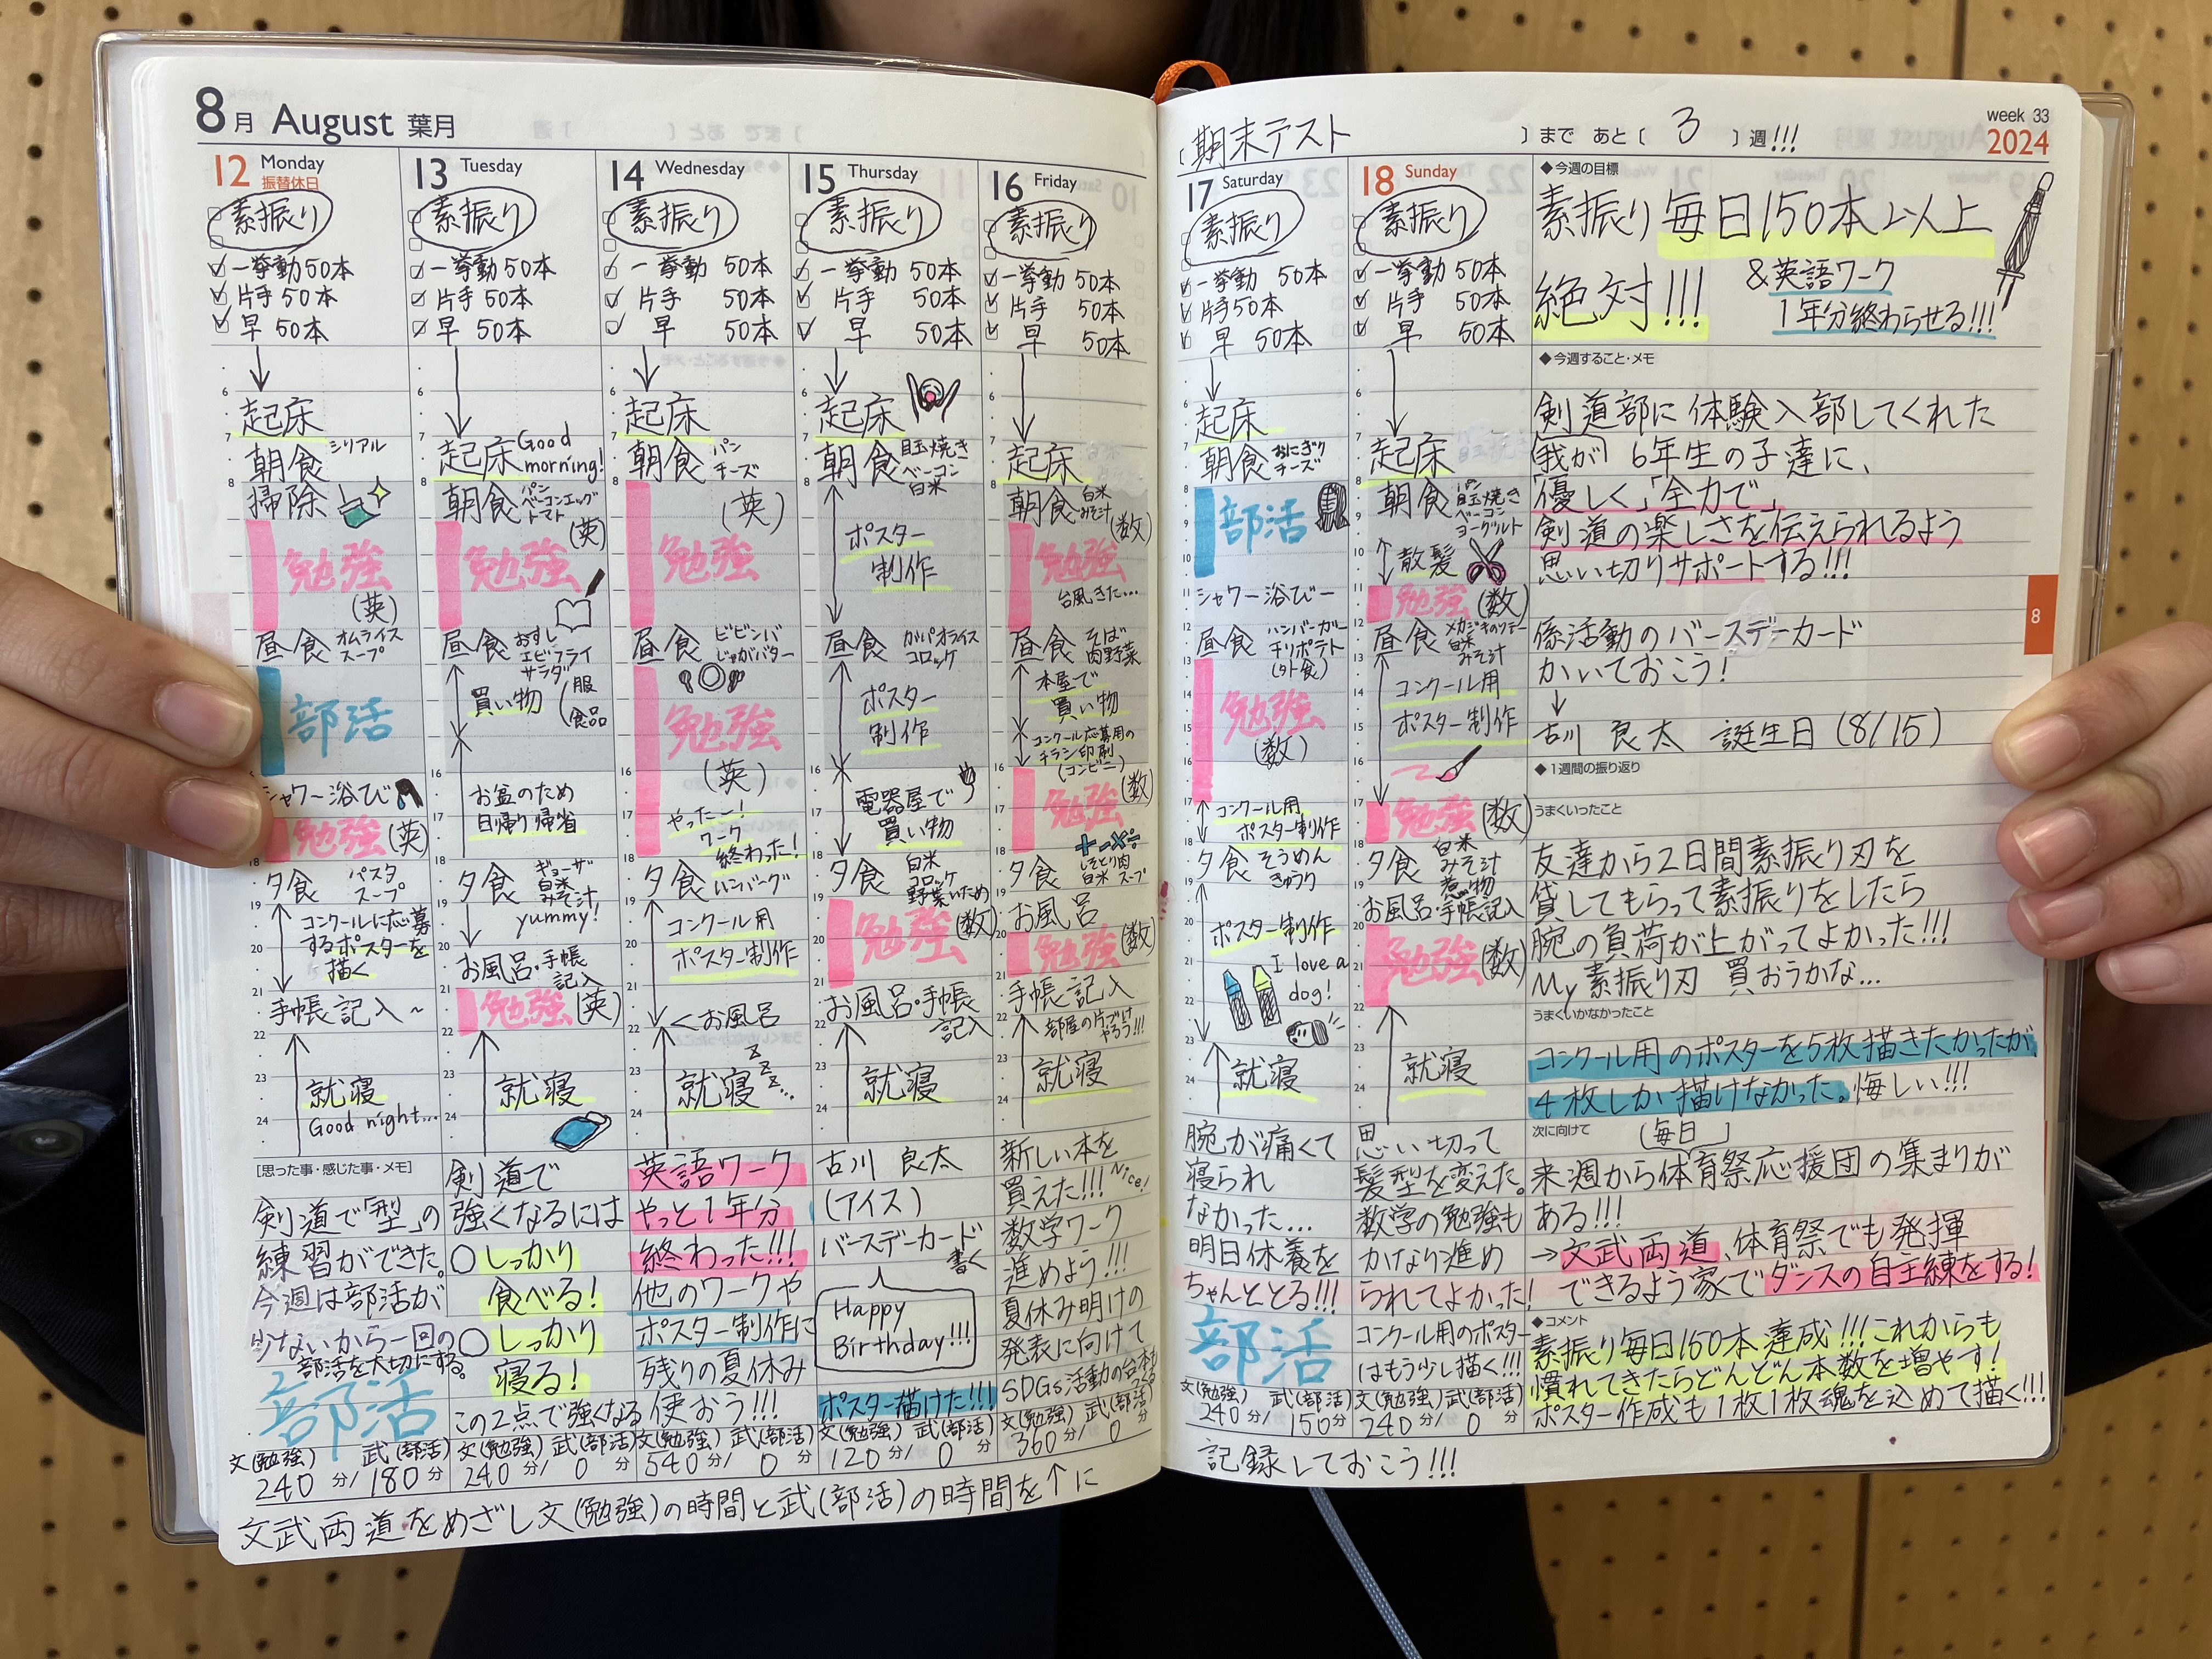 8月 August 葉月
12 Monday
振替休日
素振り
一挙動50本
片手50本
早 50本
起床
朝食 シリアル
掃除
勉強
(英)
昼食 オムライス
スープ
部活
シャワー浴び
勉強(英)
夕食 パスタ
スープ
コンクールに応募
するポスターを
描く
手帳記入~
就寝
Good night...
[思った事・感じた事・メモ]
剣道で「型」の
練習ができた。
今週は部活が
少ないから一回の
部活を大切にする。
部活
文(勉強) 武(部活)
240分/180分
13 Tuesday
素振り
一挙動50本
片手50本
早 50本
起床 Good
morning!
朝食 パン
ベーコンエッグ
トマト
(英)
勉強
昼食 おすし
エビフライ
サラダ
買い物 (服
食品
お盆のため
日帰り帰省
夕食 ギョーザ
白米
みそ汁
yummy!
お風呂・手帳
記入
勉強(英)
就寝
剣道で
強くなるには
○しっかり
食べる!
○しっかり
寝る!
この2点で強くなる
文(勉強) 武(部活)
240分/ 0分
14 Wednesday
素振り
一挙動 50本
片手 50本
早 50本
起床
朝食 パン
チーズ
(英)
勉強
昼食 ビビンバ
じゃがバター
勉強
(英)
やったー!
ワーク
終わった!
夕食 ハンバーグ
コンクール用
ポスター制作
<お風呂
就寝 zzz...
英語ワーク
やっと1年分
終わった!!!
他のワークや
ポスター制作に
残りの夏休み
使おう!!!
文(勉強) 武(部活)
540分/ 0分
15 Thursday
素振り
一挙動 50本
片手 50本
早 50本
起床
朝食 目玉焼き
ベーコン
白米
ポスター
制作
昼食 ガパオライス
コロッケ
ポスター
制作
電器屋で
買い物
夕食 白米
コロッケ
野菜いため
勉強(数)
お風呂・手帳
記入
就寝
古川 良太
(アイス)
バースデーカード
書く
Happy
Birthday!!!
ポスター描けた!!!
文(勉強) 武(部活)
120分/ 0分
16 Friday
素振り
一挙動 50本
片手 50本
早 50本
起床
朝食 白米
みそ汁
(数)
勉強
台風きた...
昼食 そば
肉野菜
本屋で
買い物
コンクール応募用の
チラシ印刷
(コンビニ)
勉強(数)
+-×÷
夕食 白米 スープ
お風呂
勉強(数)
手帳記入
部屋の片づけ
やろう!!!
就寝
新しい本を
買えた!!! Nice!
数学ワーク
進めよう!!!
夏休み明けの
発表に向けて
SDGs活動の台本も
文(勉強) 武(部活)
360分/ 0分
文武両道をめざし文(勉強)の時間と武(部活)の時間を↑に
[期末テスト ]まで あと[ 3 ]週!!!
week 33
2024
17 Saturday
素振り
一挙動 50本
片手50本
早 50本
起床
朝食 おにぎり
チーズ
部活
シャワー浴びー
昼食 ハンバーガー
チリポテト
(夕食)
勉強
(数)
コンクール用
ポスター制作
夕食 そうめん
きゅうり
ポスター制作
I love a
dog!
就寝
腕が痛くて
寝られ
なかった...
明日休養を
ちゃんととる!!!
部活
文(勉強) 武(部活)
240分/ 150分
18 Sunday
素振り
一挙動50本
片手 50本
早 50本
起床
朝食 パン
目玉焼き
ベーコン
ヨーグルト
散髪
勉強(数)
昼食 メカジキのソテー
白米
みそ汁
コンクール用
ポスター制作
勉強(数)
夕食 白米
みそ汁
煮物
お風呂・手帳記入
勉強(数)
就寝
思い切って
髪型を変えた。
数学の勉強も
かなり進め
られてよかった!
コンクール用のポスター
はもう少し描く!!!
文(勉強) 武(部活)
240分/ 0分
◆今週の目標
素振り毎日150本以上
絶対!!!
&英語ワーク
1年分終わらせる!!!
◆今週すること・メモ
剣道部に体験入部してくれた
(我が)6年生の子達に、
「優しく」「全力で」
剣道の楽しさを伝えられるよう
思い切りサポートする!!!
係活動のバースデーカード
かいておこう!
↓
古川 良太 誕生日(8/15)
◆1週間の振り返り
うまくいったこと
友達から2日間素振り刃を
貸してもらって素振りをしたら
腕の負荷が上がってよかった!!!
My素振り刃 買おうかな...
うまくいかなかったこと
コンクール用のポスターを5枚描きたかったが、
4枚しか描けなかった。悔しい!!!
次に向けて
(毎日)
来週から体育祭応援団の集まりが
ある!!!
→文武両道、体育祭でも発揮
できるよう家でダンスの自主練をする!
◆コメント
素振り毎日150本達成!!!これからも
慣れてきたらどんどん本数を増やす!
ポスター作成も1枚1枚魂を込めて描く!!!
記録しておこう!!!
8